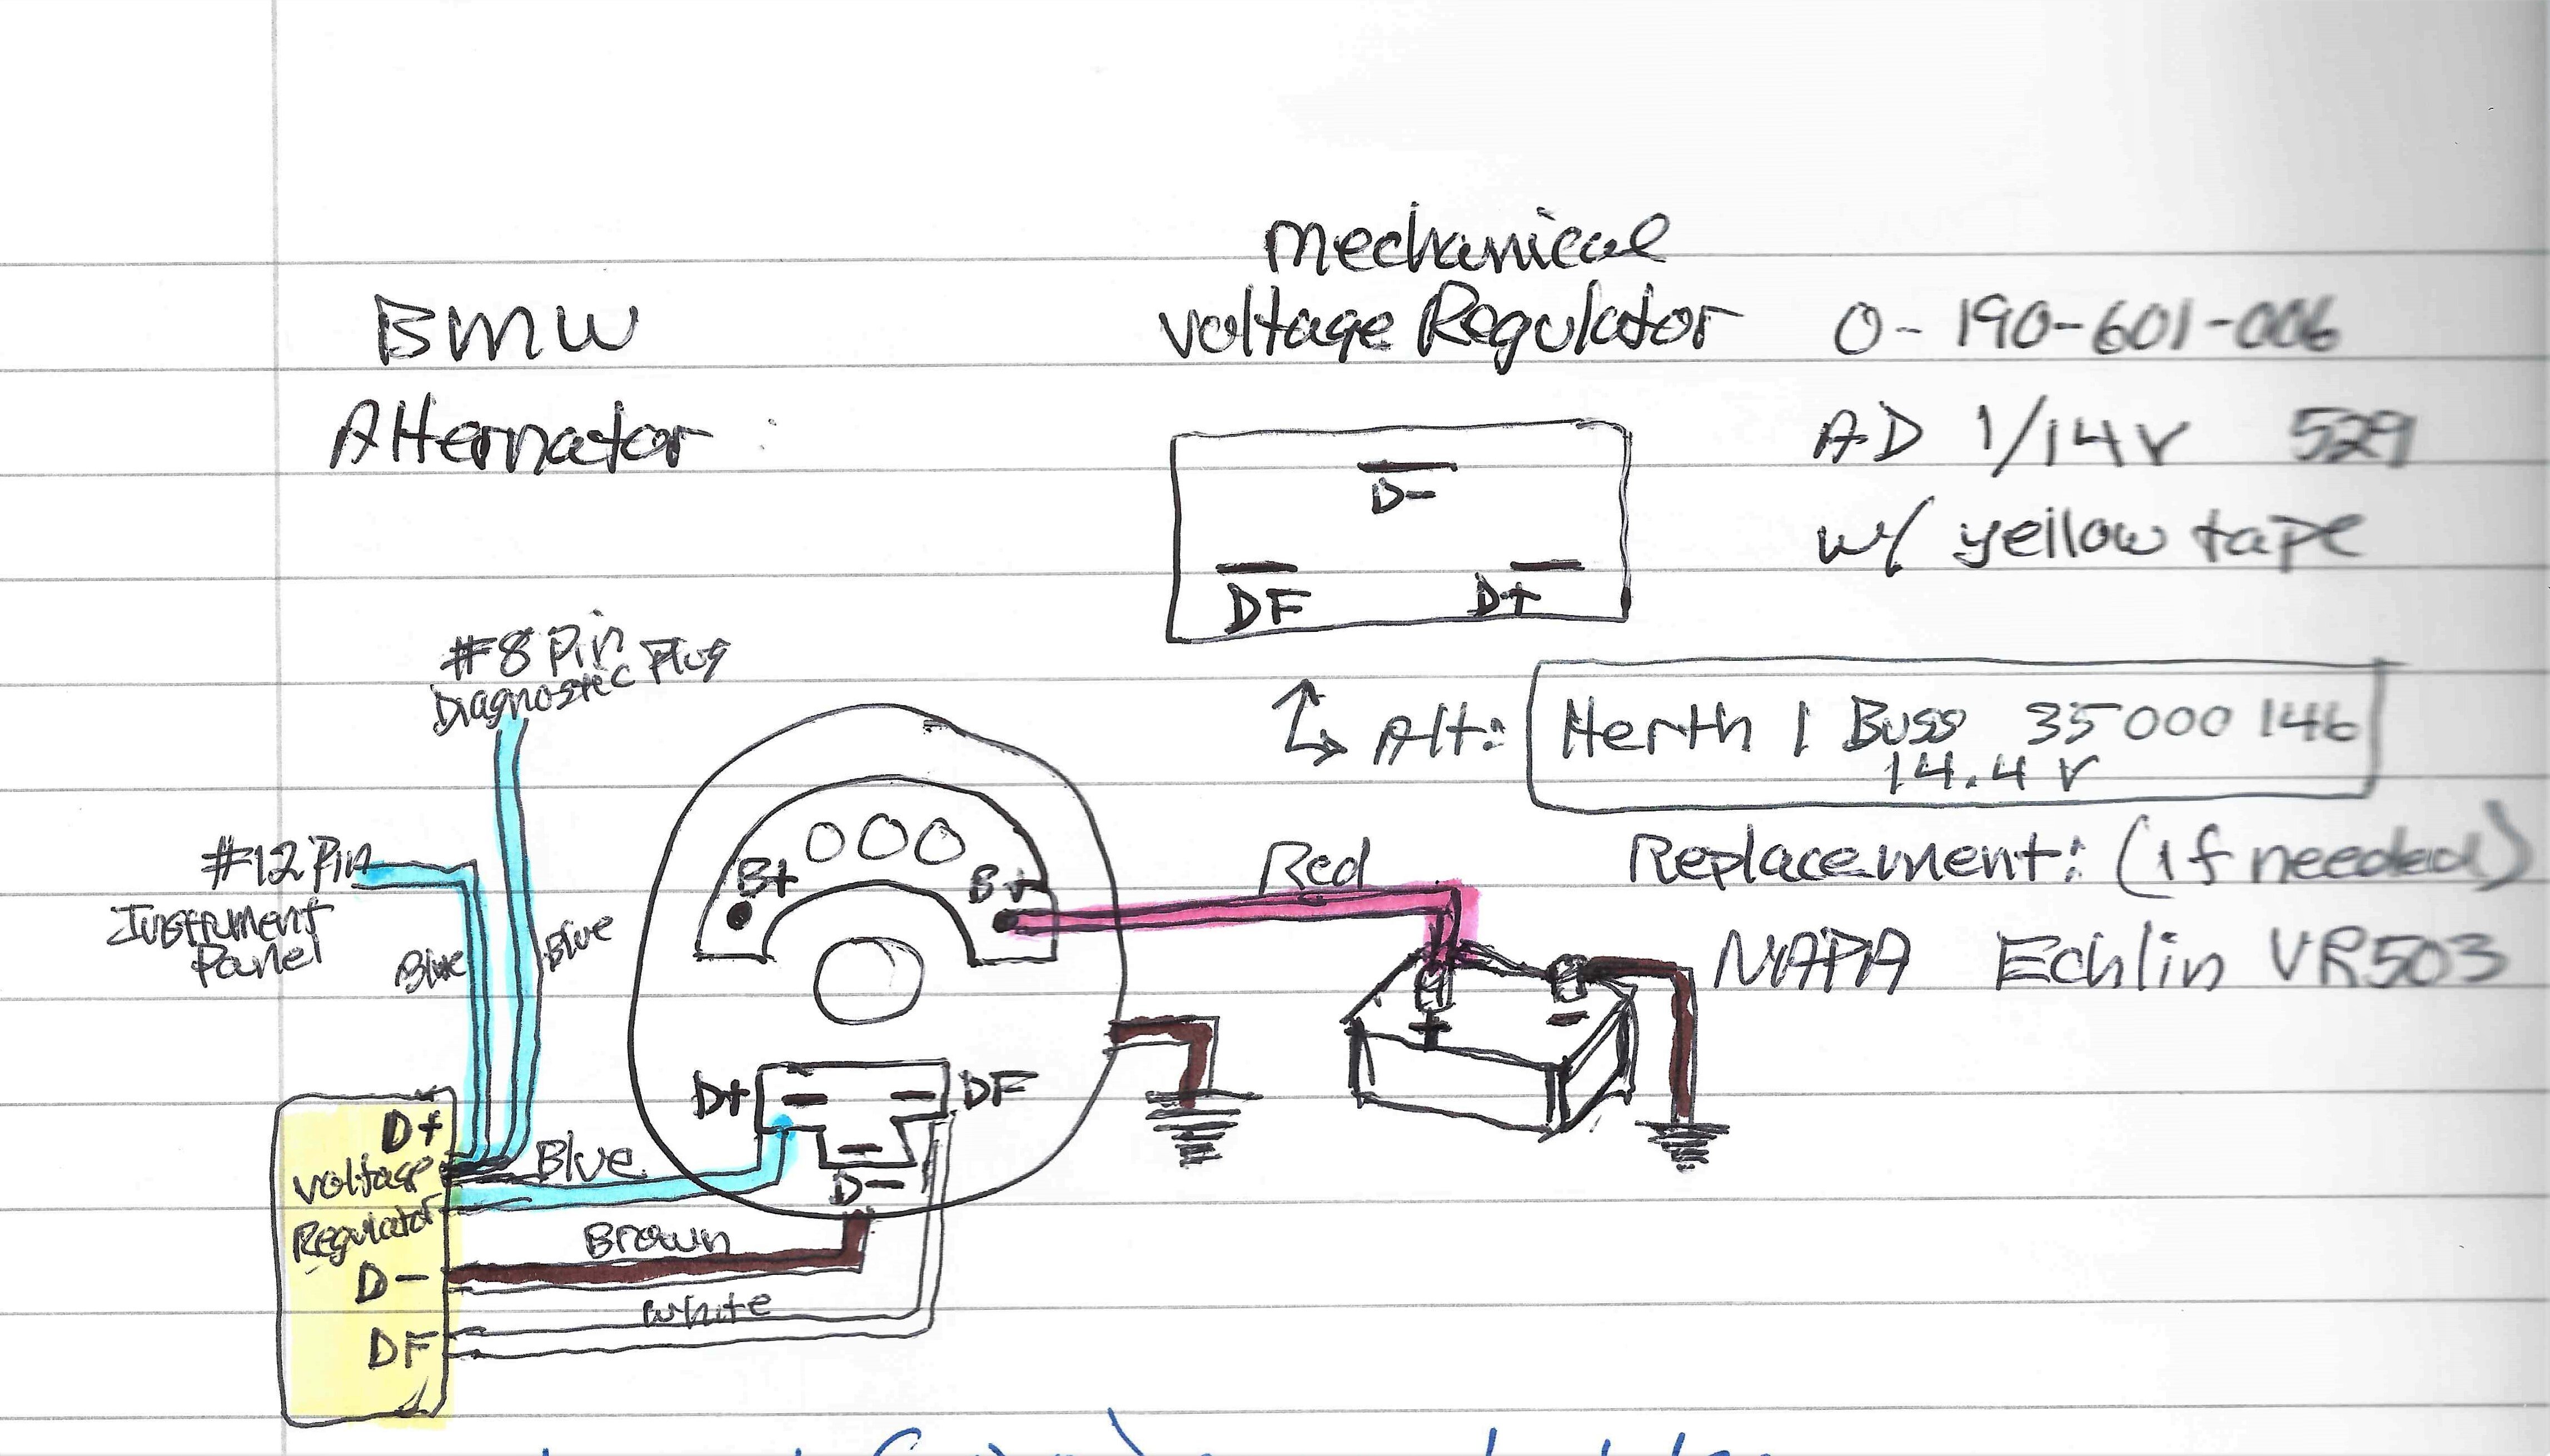 BMW
Alternator
mechanical
voltage Regulator 0-190-601-006
AD 1/14V 529
w/ yellow tape
D-
DF D+
Alt: Herth 1 Buss 35000146
14.4 V
Replacement: (if needed)
NAPA Echlin VR503
#8 Pin
Diagnostic Plug
#12 Pin
Instrument
Panel
Blue
Blue
B+ B+
Red
+ -
D+ DF
D-
D+
Voltage
Regulator
D-
DF
Blue
Brown
white